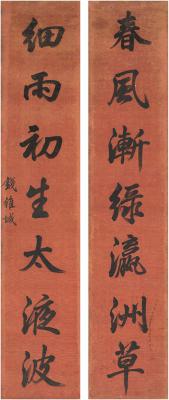 春風漸綠瀛洲草
細雨初生太液波
錢維城